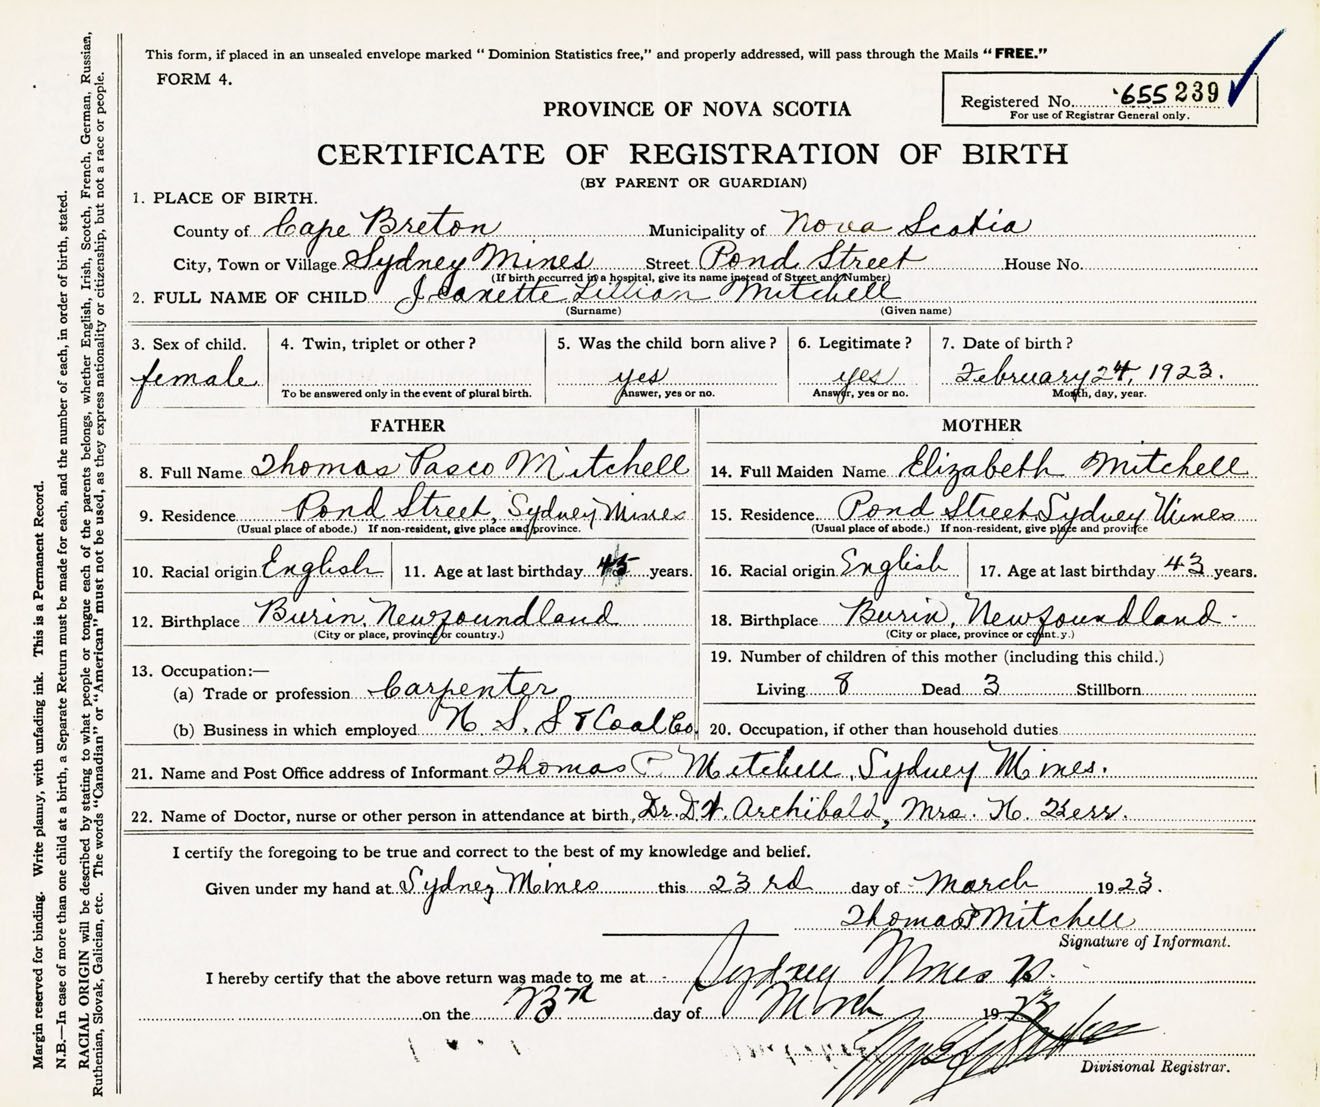 This form, if placed in an unsealed envelope marked “ Dominion Statistics free,” and properly addressed, will pass through the Mails “FREE.”
FORM 4.
Registered No. 655 239
For use of Registrar General only.
PROVINCE OF NOVA SCOTIA
CERTIFICATE OF REGISTRATION OF BIRTH
(BY PARENT OR GUARDIAN)
1. PLACE OF BIRTH.
County of Cape Breton Municipality of Nova Scotia
City, Town or Village Sydney Mines Street Pond Street House No.
(If birth occurred in a hospital, give its name instead of Street and Number)
2. FULL NAME OF CHILD Jeanette Lillian Mitchell
(Surname) (Given name)
3. Sex of child. 4. Twin, triplet or other ? 5. Was the child born alive ? 6. Legitimate ? 7. Date of birth ?
female yes yes February 24, 1923.
To be answered only in the event of plural birth. Answer, yes or no. Answer, yes or no. Month, day, year.
FATHER MOTHER
8. Full Name Thomas Pasco Mitchell 14. Full Maiden Name Elizabeth Mitchell
9. Residence Pond Street, Sydney Mines 15. Residence Pond Street Sydney Mines
(Usual place of abode.) If non-resident, give place and province. (Usual place of abode.) If non-resident, give place and province
10. Racial origin English 11. Age at last birthday 45 years. 16. Racial origin English 17. Age at last birthday 43 years.
12. Birthplace Burin, Newfoundland 18. Birthplace Burin, Newfoundland
(City or place, province or country.) (City or place, province or count.y.)
13. Occupation:— 19. Number of children of this mother (including this child.)
(a) Trade or profession Carpenter Living 8 Dead 3 Stillborn
(b) Business in which employed N. S. S & Coal Co. 20. Occupation, if other than household duties
21. Name and Post Office address of Informant Thomas P Mitchell, Sydney Mines.
22. Name of Doctor, nurse or other person in attendance at birth, Dr. D.W. Archibald, Mrs. H. Kerr.
I certify the foregoing to be true and correct to the best of my knowledge and belief.
Given under my hand at Sydney Mines this 23rd day of March 1923.
Thomas P Mitchell
Signature of Informant.
I hereby certify that the above return was made to me at Sydney Mines
on the 23rd day of March 1923
Divisional Registrar.
Margin reserved for binding. Write plainly, with unfading ink. This is a Permanent Record.
N.B.—In case of more than one child at a birth, a Separate Return must be made for each, and the number of each, in order of birth, stated.
RACIAL ORIGIN will be described by stating to what people or tongue each of the parents belongs, whether English, Irish, Scotch, French, German, Russian,
Ruthenian, Slovak, Galician, etc. The words “Canadian” or “American” must not be used, as they express nationality or citizenship, but not a race or people.